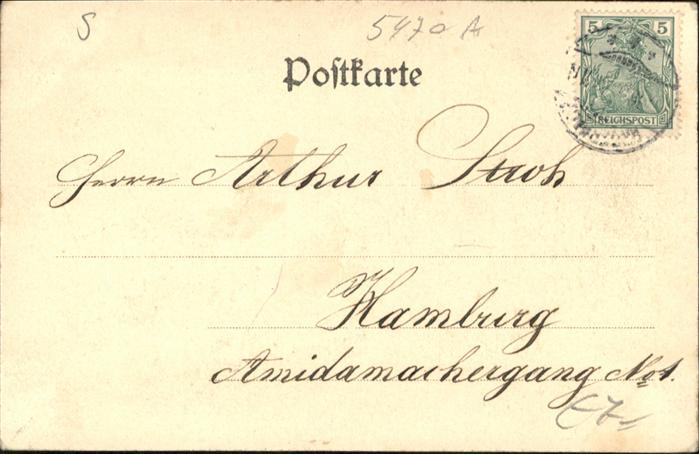 S
5470 A
5 5
REICHSPOST
Postkarte
Herrn Arthur Stroh
Hamburg
Amidamachergang No 1.